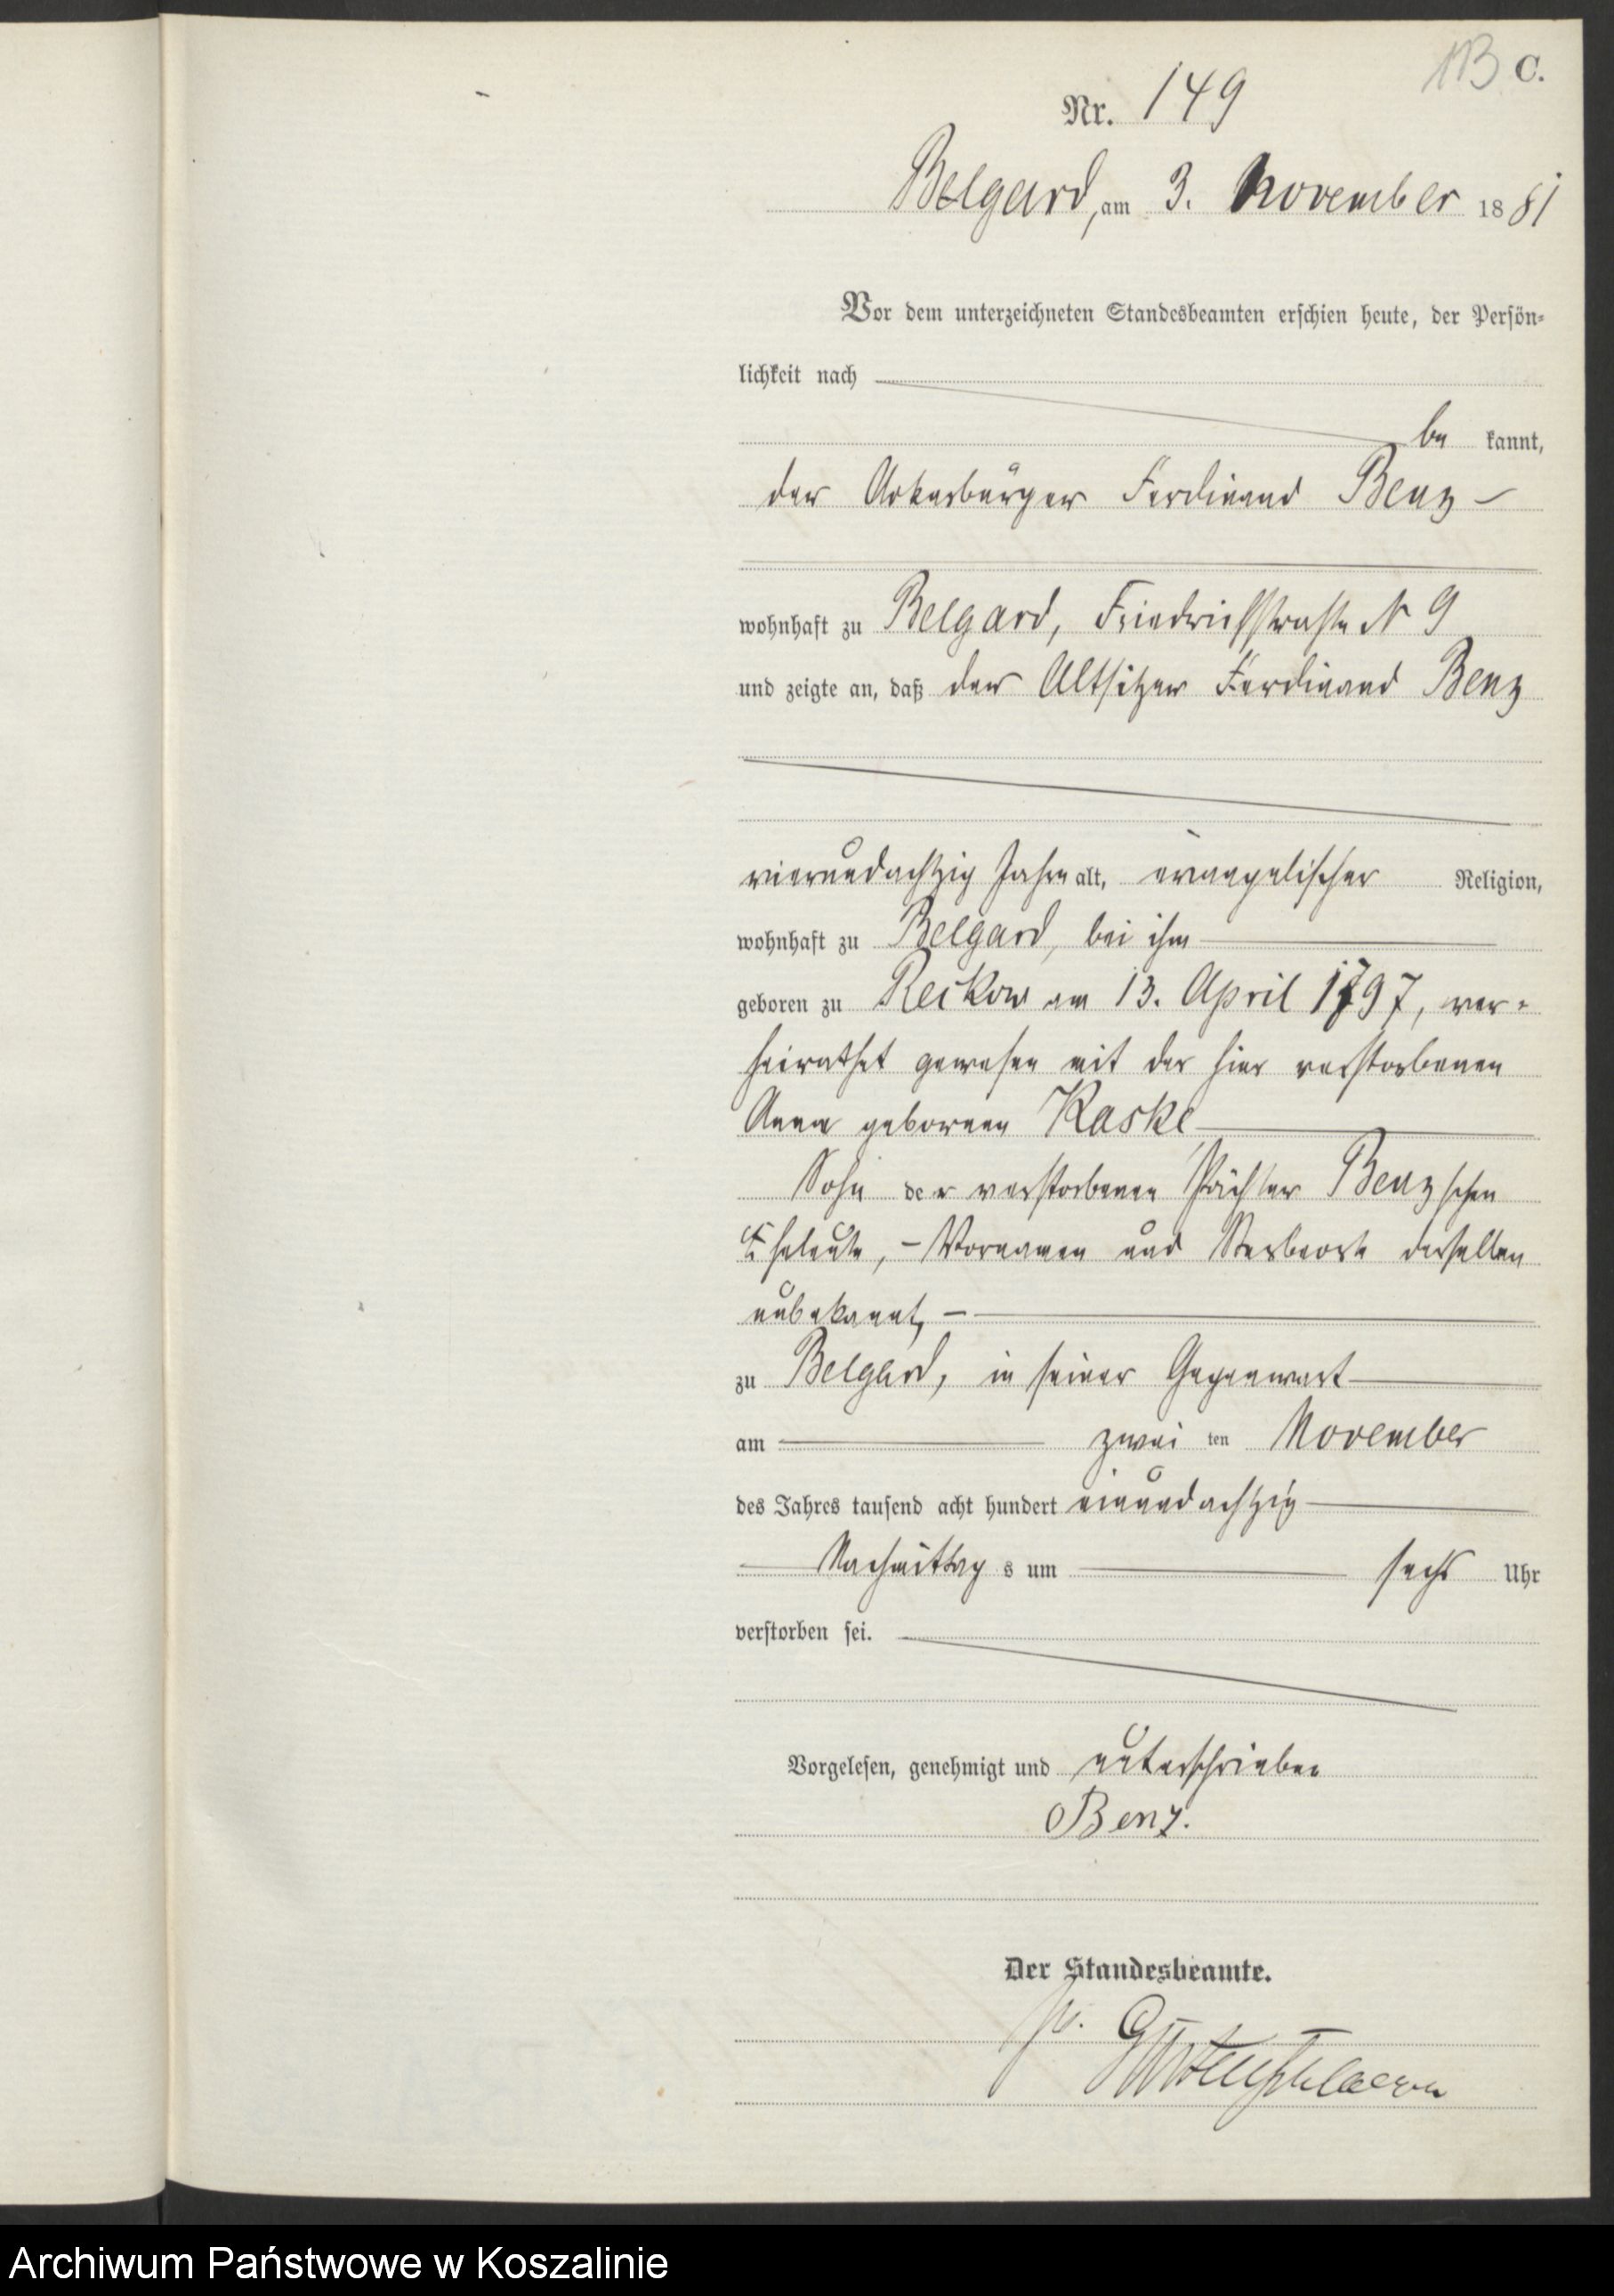 113 C.
Nr. 149
Belgard, am 3. November 1881
Vor dem unterzeichneten Standesbeamten erschien heute, der Persön-
lichkeit nach
be kannt,
der Ackerbürger Ferdinand Benz
wohnhaft zu Belgard, Friedrichstraße N 9
und zeigte an, daß der Altsitzer Ferdinand Benz
vierundachtzig Jahre alt, evangelischer Religion,
wohnhaft zu Belgard, bei ihm
geboren zu Reckow am 13. April 1797, ver-
heirathet gewesen mit der hier verstorbenen
Anna geborenen Kaske
Sohn der verstorbenen Pächter Benzschen
Eheleute, - Vornamen und Sterbeorte derselben
unbekannt, -
zu Belgard, in seiner Gegenwart
am zwei ten November
des Jahres tausend acht hundert einundachtzig
Nachmittag s um sechs Uhr
verstorben sei.
Vorgelesen, genehmigt und unterschrieben
Benz.
Der Standesbeamte.
Archiwum Państwowe w Koszalinie